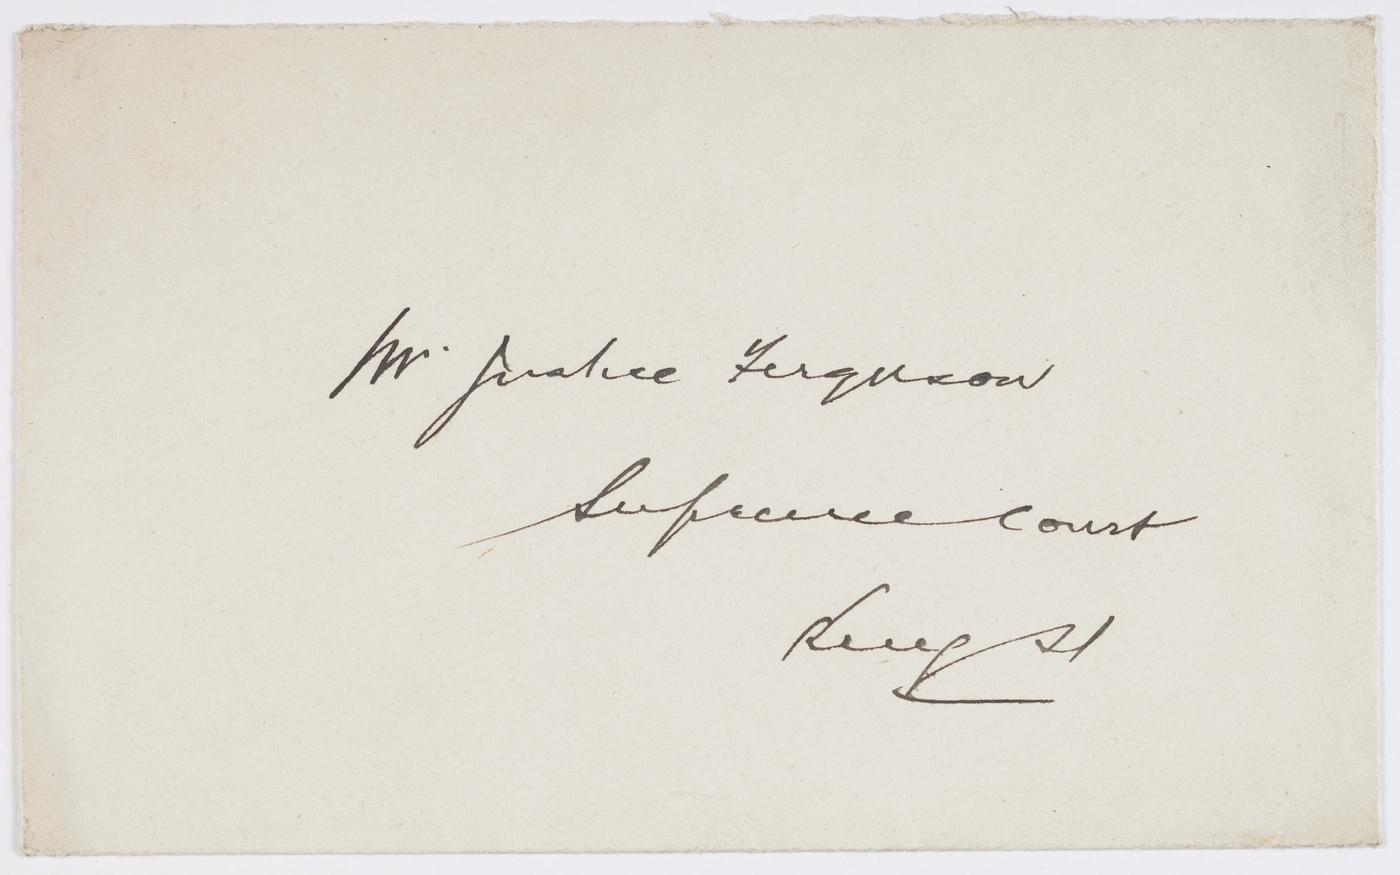 Mr. Justice Ferguson
Supreme Court
King St